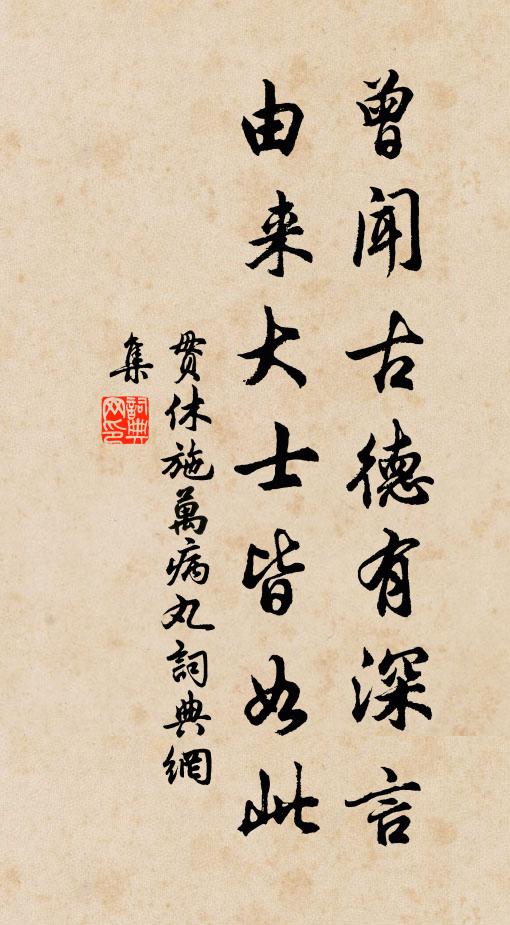 曾聞古德有深言
由来大士皆如此
貫休施萬病丸詞典網
集
詞典網印